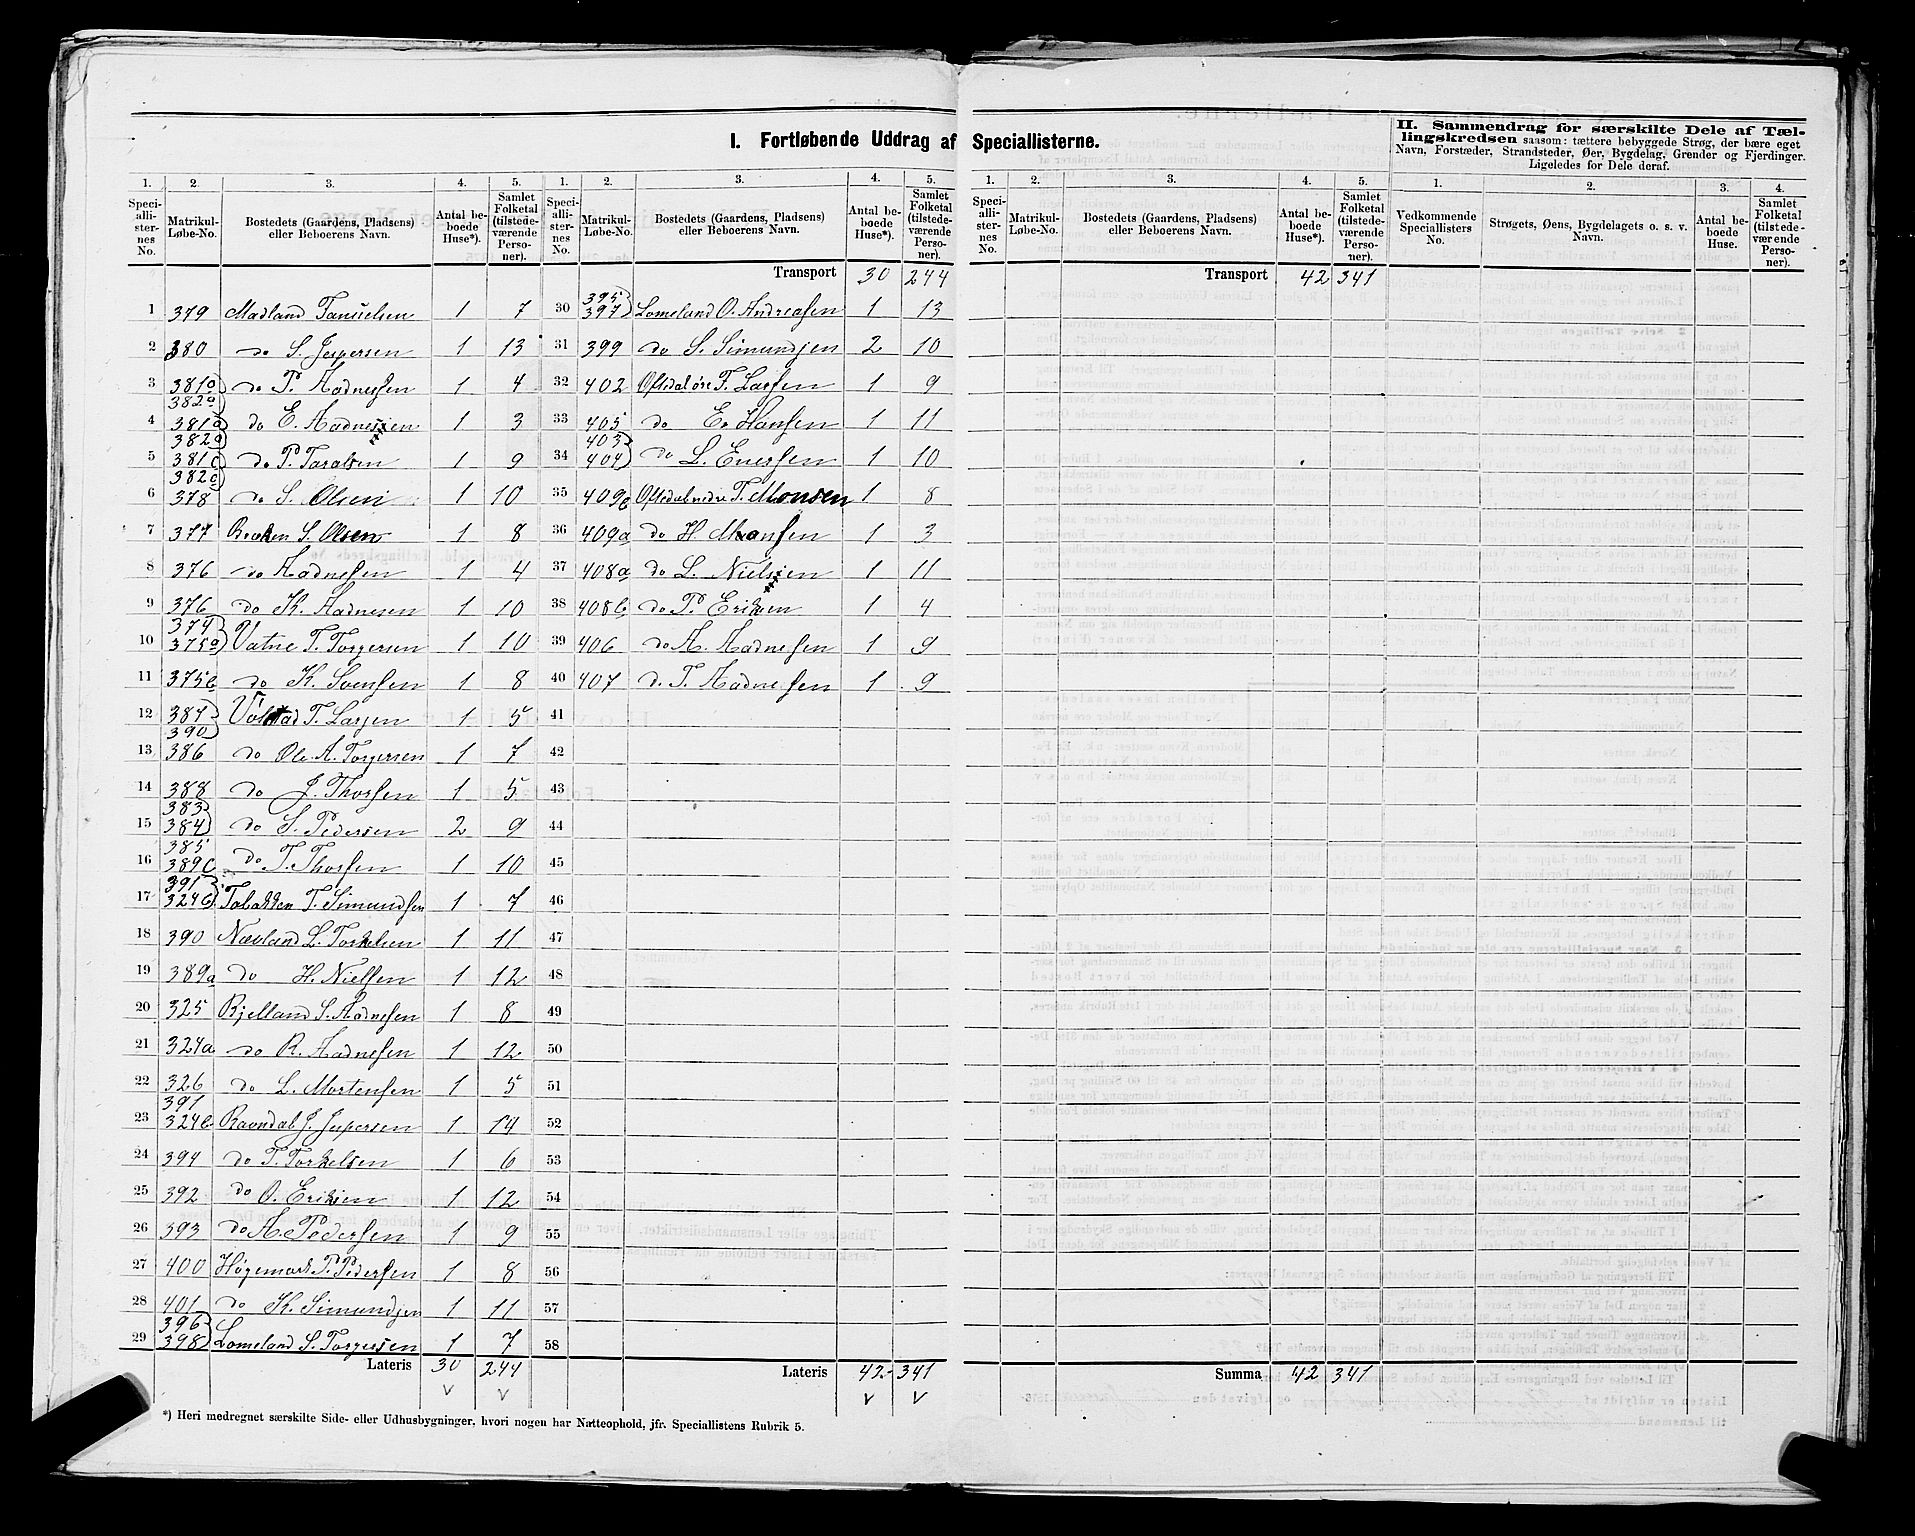 I. Fortløbende Uddrag af Speciallisterne.
II. Sammendrag for særskilte Dele af Tæl-
lingskredsen saasom: tættere bebyggede Strøg, der bære eget
Navn, Forstæder, Strandsteder, Øer, Bygdelag, Grender og Fjerdinger.
Ligeledes for Dele deraf.
1. 2. 3. 4. 5. 1. 2. 3. 4. 5. 1. 2. 3. 4. 5. 1. 2. 3. 4.
Speciallisternes No. Matrikul-Løbe-No. Bostedets (Gaardens, Pladsens) eller Beboerens Navn. Antal beboede Huse*). Samlet Folketal (tilstedeværende Personer).
Speciallisternes No. Matrikul-Løbe-No. Bostedets (Gaardens, Pladsens) eller Beboerens Navn. Antal beboede Huse*). Samlet Folketal (tilstedeværende Personer).
Speciallisternes No. Matrikul-Løbe-No. Bostedets (Gaardens, Pladsens) eller Beboerens Navn. Antal beboede Huse*). Samlet Folketal (tilstedeværende Personer).
Vedkommende Speciallisters No. Strøgets, Øens, Bygdelagets o. s. v. Navn. Antal beboede Huse. Samlet Folketal (tilstedeværende Personer).
1 379 Madland Tanielsen 1 7
2 380 do S. Jespersen 1 13
3 381a 382a do P. Aadnessen 1 4
4 381a 382a do E. Aadnessen 1 3
5 381c 382c do P. Taralsen 1 9
6 378 do S. Olsen 1 10
7 377 Brækken S. Olsen 1 8
8 376 do Aadnesen 1 4
9 376 do K. Aadnesen 1 10
10 374 375a Vatne T. Torgersen 1 10
11 375b do K. Svensen 1 8
12 387 390 Volstad T. Larsen 1 5
13 386 do Ole A. Torgersen 1 7
14 388 do J. Thorsen 1 5
15 383 384 do S. Pedersen 2 9
16 385 389c do T. Thorsen 1 10
17 391 324c Tobakken T. Simundsen 1 7
18 390 Nævland L. Torkelsen 1 11
19 389a do H. Nielsen 1 12
20 325 Bjelland S. Aadnesen 1 8
21 324a do R. Aadnesen 1 12
22 326 do L. Mortensen 1 5
23 391 324b Ravndal J. Jespersen 1 14
24 394 do T. Torkelsen 1 6
25 392 do O. Eriksen 1 12
26 393 do A. Pedersen 1 9
27 400 Høgemark P. Pedersen 1 8
28 401 do K. Simundsen 1 11
29 396 398 Lomeland S. Torgersen 1 7
Lateris 30 244
Transport 30 244
30 395 397 Lomeland O. Andreasen 1 13
31 399 do S. Simundsen 2 10
32 402 Oftedal øvre T. Larsen 1 9
33 405 do E. Hansen 1 11
34 403 404 do L. Enersen 1 10
35 409b Oftedal nedre T. Monsen 1 8
36 409a do H. Monsen 1 3
37 408a do L. Nielsen 1 11
38 408b do P. Eriksen 1 4
39 406 do A. Aadnesen 1 9
40 407 d. T. Aadnesen 1 9
41
42
43
44
45
46
47
48
49
50
51
52
53
54
55
56
57
58
Lateris 42 341
Transport 42 341
Summa 42 341
*) Heri medregnet særskilte Side- eller Udhusbygninger, hvori nogen har Natteophold, jfr. Speciallistens Rubrik 5.